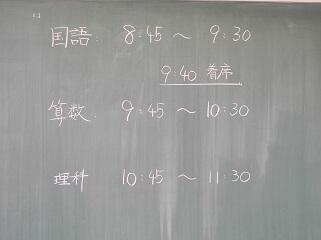 国語. 8:45 〜 9:30
9:40 着席
算数. 9:45 〜 10:30
理科 10:45 〜 11:30